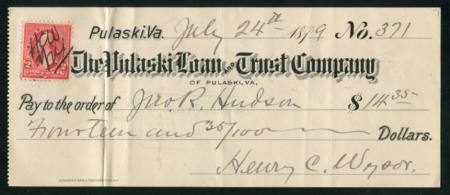 Pulaski, Va. July 24th 1899 No. 371
The Pulaski Loan and Trust Company
OF PULASKI, VA.
Pay to the order of Jno R. Hudson $14.35
Fourteen and 35/100 Dollars.
Henry C. Wysor.